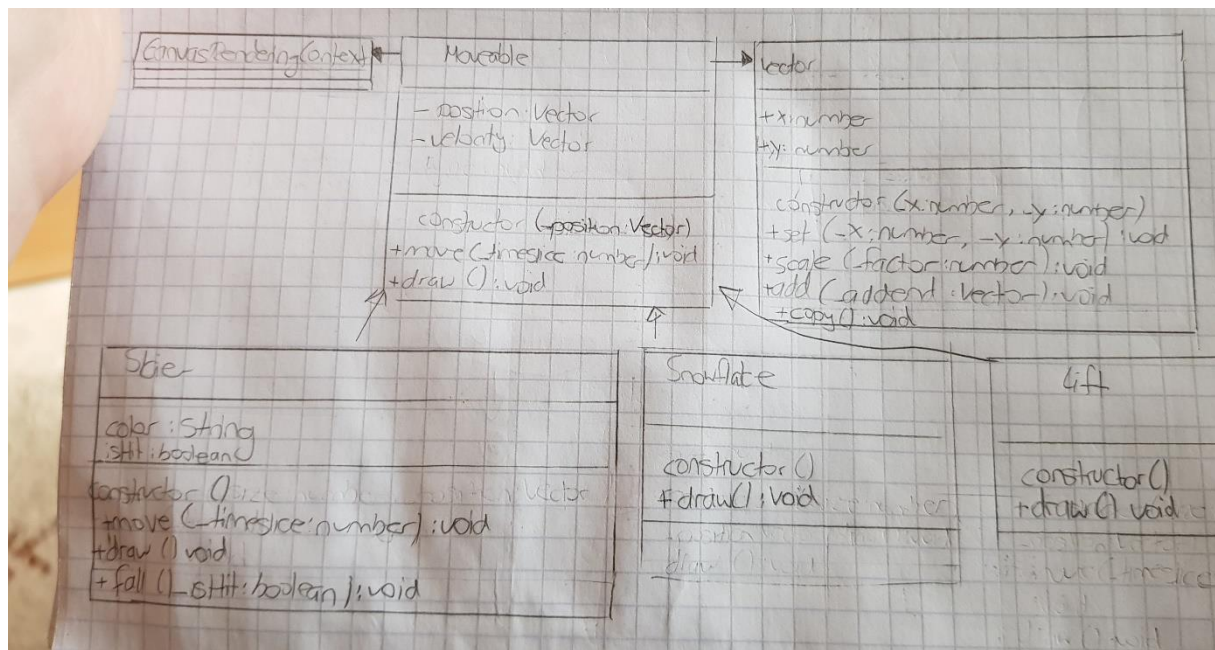 CanvasRenderingContext
Moveable
- position: Vector
- velocity: Vector
constructor (_position: Vector)
+move (_timeslice: number): void
+draw (): void
Vector
+x: number
+y: number
constructor (_x: number, _y: number)
+set (_x: number, _y: number): void
+scale (_factor: number): void
+add (_addend: Vector): void
+copy(): void
Skier
color: String
isHit: boolean
constructor ()
+move (_timeslice: number): void
+draw () void
+ fall () _isHit: boolean ): void
Snowflake
constructor ()
+draw(): void
Lift
constructor ()
+draw () void